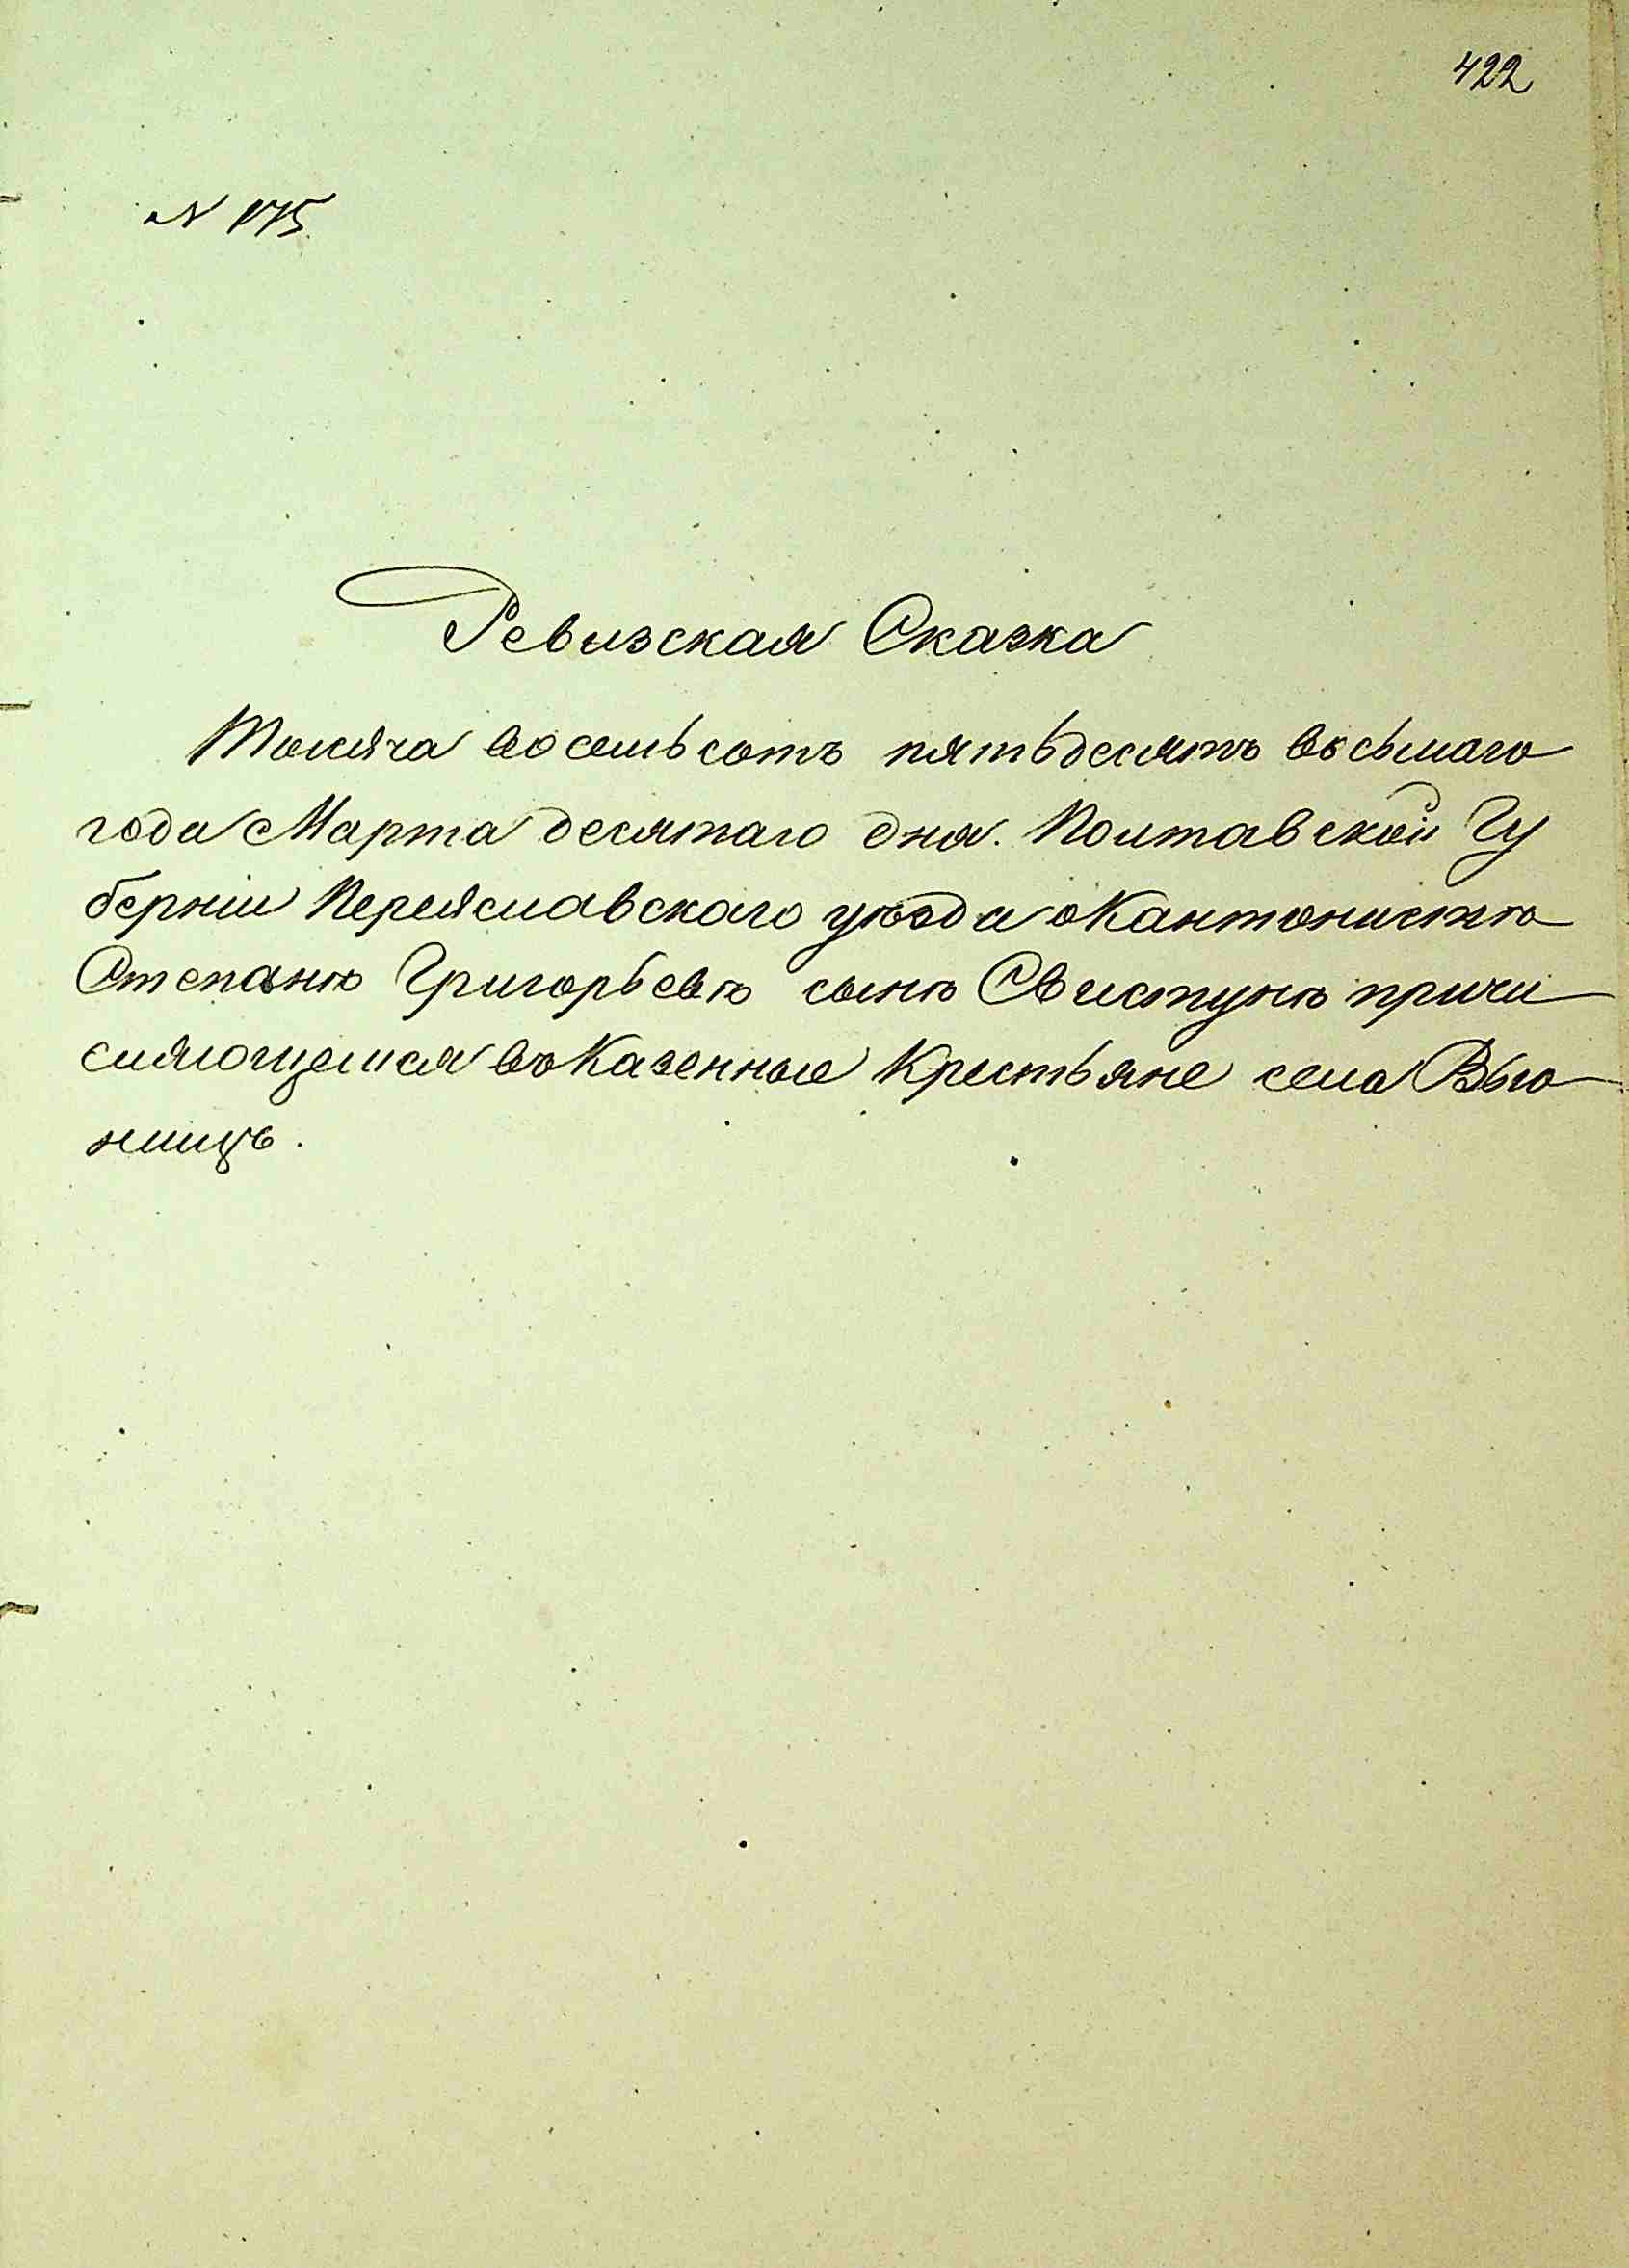 422
N 175.
Ревизская Сказка
Тысяча восемьсотъ пятьдесятъ восьмаго
года Марта десятаго дня. Полтавской Гу
берніи Переяславского уѣзда о Кантонистѣ
Степанѣ Григорьевѣ сынѣ Свистунѣ причи
сляющемся въ Казенные Крестьяне села Вью
ницъ.